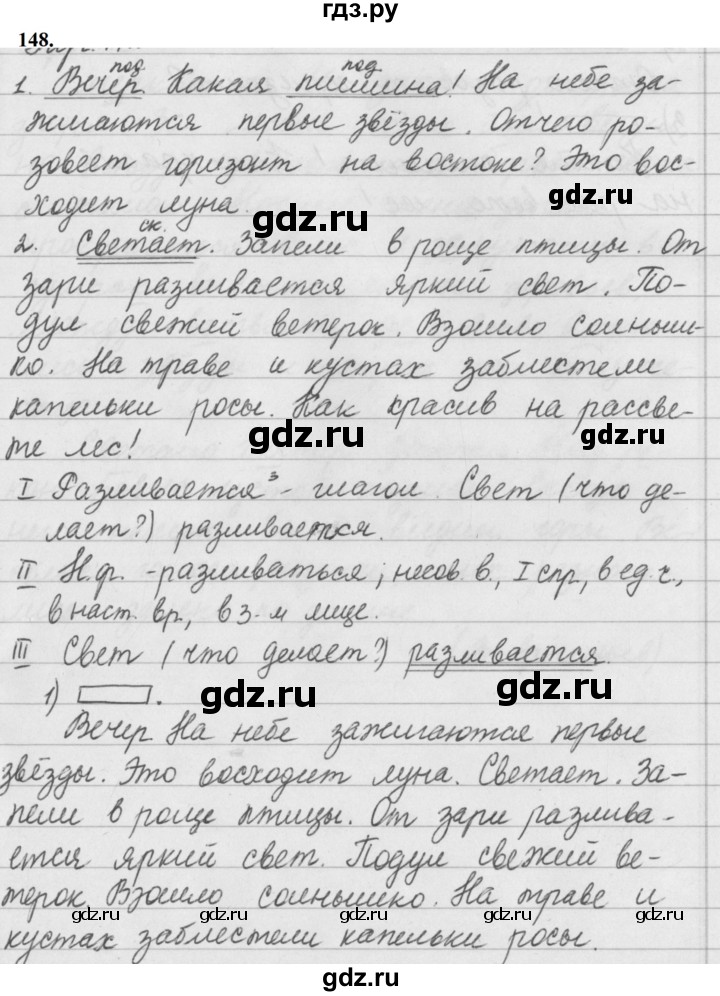 гдз.ру
148.
под под
1. Вечер. Какая тишина! На небе за-
жигаются первые звёзды. Отчего ро-
зовеет горизонт на востоке? Это вос-
gdz.ru
ходит луна.
gdz.ru
ск.
2. Светает. Запели в роще птицы. От
зари разливается яркий свет. По-
gdz.ru
дул свежий ветерок. Взошло солныш-
ко. На траве и кустах заблестели
капельки росы. Как красив на рассве-
gdz.ru gdz.ru
те лес!
I Разливается³ - глагол. Свет (что де-
лает?) разливается.
II Н.ф. - разливаться; несов. в., I спр., в ед. ч.,
в наст. вр., в 3-м лице.
III Свет (что делает?) разливается.
1) .
gdz.ru gdz.ru
Вечер. На небе зажигаются первые
звёзды. Это восходит луна. Светает. За-
пели в роще птицы. От зари разлива-
ется яркий свет. Подул свежий ве-
терок. Взошло солнышко. На траве и
gdz.ru gdz.ru gdz.ru gdz.ru
кустах заблестели капельки росы.
гдз.ру